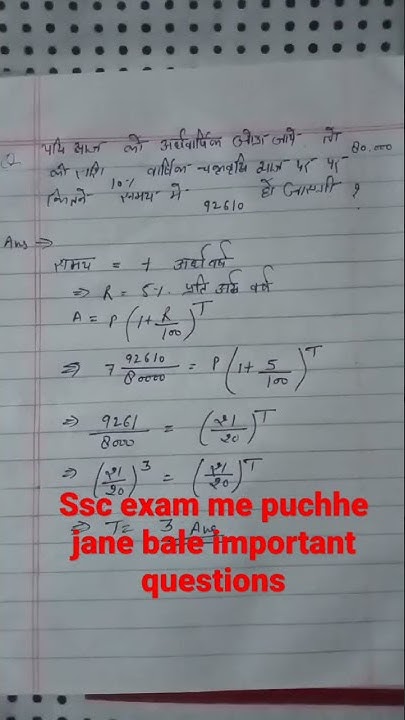 Q यदि ब्याज को अर्धवार्षिक जोड़ा जाये तो 80.000
की राशि 10% वार्षिक चक्रवृद्धि ब्याज दर पर
कितने समय में 92610 हो जाएगी ?
Ans ⇒
समय = T अर्धवर्ष
⇒ R = 5% प्रति अर्द्ध वर्ष
A = P (1 + R/100)^T
⇒ 7 92610/80000 = P (1 + 5/100)^T
⇒ 9261/8000 = (21/20)^T
⇒ (21/20)^3 = (21/20)^T
⇒ T = 3 Ans
Ssc exam me puchhe
jane bale important
questions